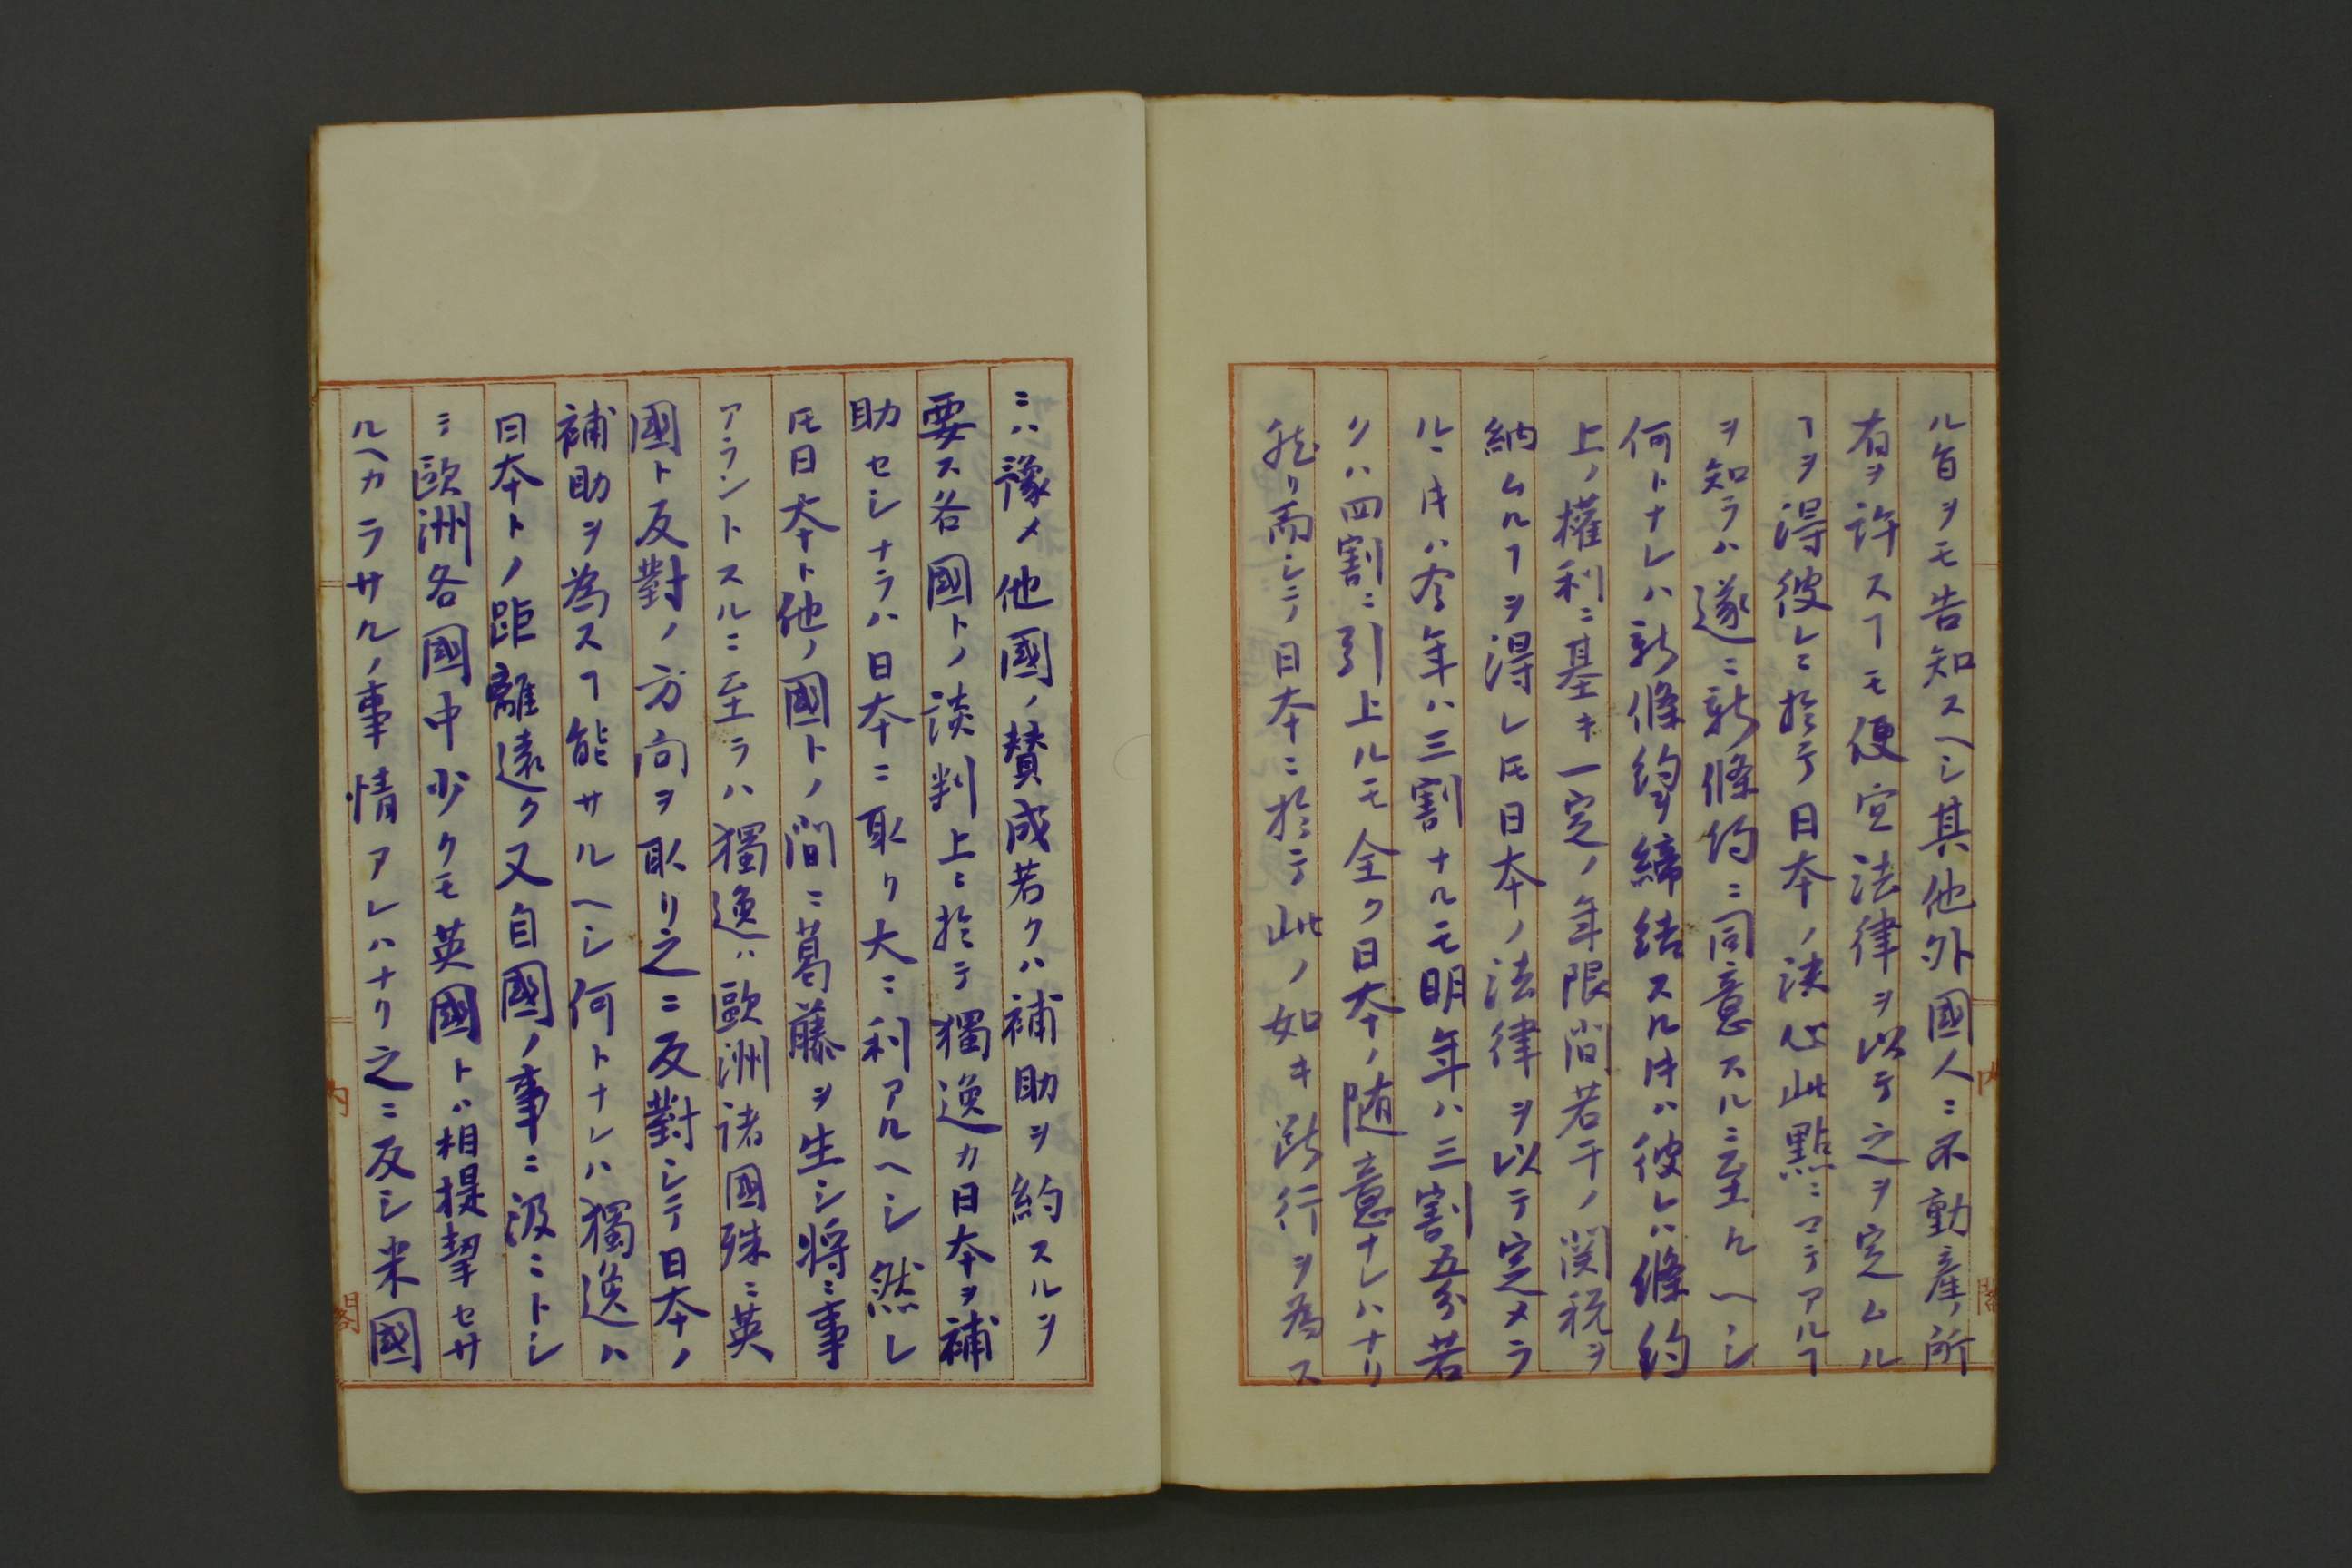 ル旨ヲモ告知スヘシ其他外國人ニ不動産ノ所
有ヲ許スヿモ便宜法律ヲ以テ之ヲ定ムル
ヿヲ得彼レニ於テ日本ノ決心此點ニマテアルヿ
ヲ知ラハ遂ニ新條約ニ同意スルニ至ルヘシ
何トナレハ新條約ヲ締結スルトキハ彼レハ條約
上ノ權利ニ基キ一定ノ年限間若干ノ関税ヲ
納ムルヿヲ得レ𪜈日本ノ法律ヲ以テ定メラ
ルヽトキハ今年ハ三割ナルモ明年ハ三割五分若
クハ四割ニ引上ルモ全ク日本ノ随意ナレハナリ
然リ而シテ日本ニ於テ此ノ如キ断行ヲ為ス
ニハ豫メ他國ノ賛成若クハ補助ヲ約スルヲ
要ス各國トノ談判上ニ於テ獨逸カ日本ヲ補
助セシナラハ日本ニ取リ大ニ利アルヘシ然レ
𪜈日本ト他ノ國トノ間ニ葛藤ヲ生シ将ニ事
アラントスルニ至ラハ獨逸ハ歐洲諸國殊ニ英
國ト反對ノ方向ヲ取リ之ニ反對シテ日本ノ
補助ヲ為スヿ能サルヘシ何トナレハ獨逸ハ
日本トノ距離遠ク又自國ノ事ニ汲々トシ
テ歐洲各國中少クモ英國トハ相提挈セサ
ルヘカラサルノ事情アレハナリ之ニ反シ米國
内閣
内閣